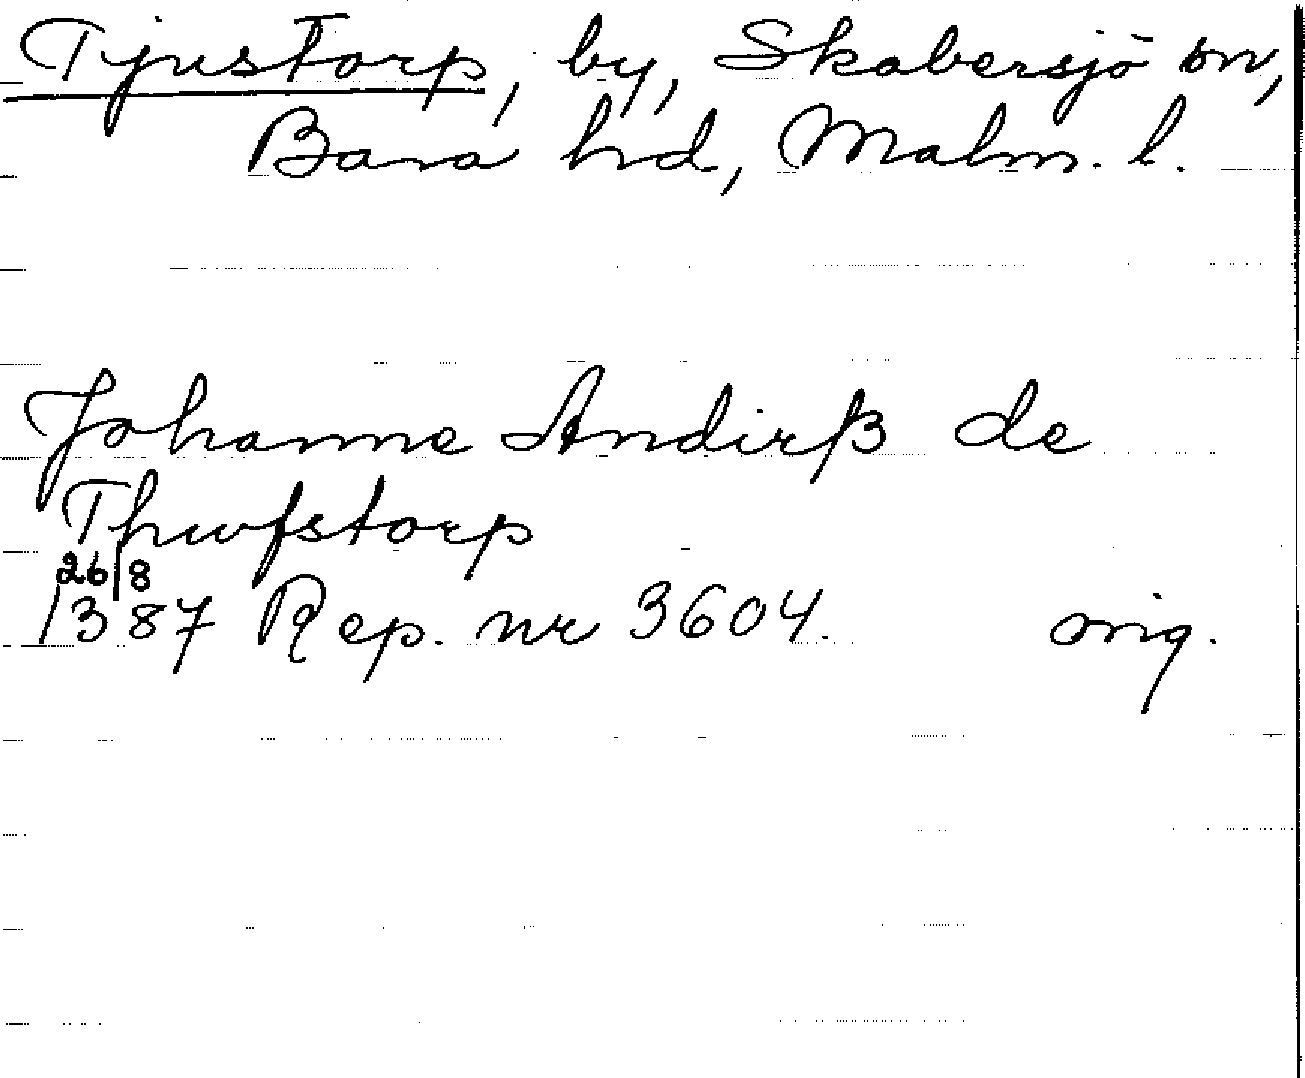 Tjustorp, by, Skabersjö sn,
Bara hd, Malm. l.
Johanne Andirß de
Thiufstorp
26/8
1387 Rep. nr 3604. orig.